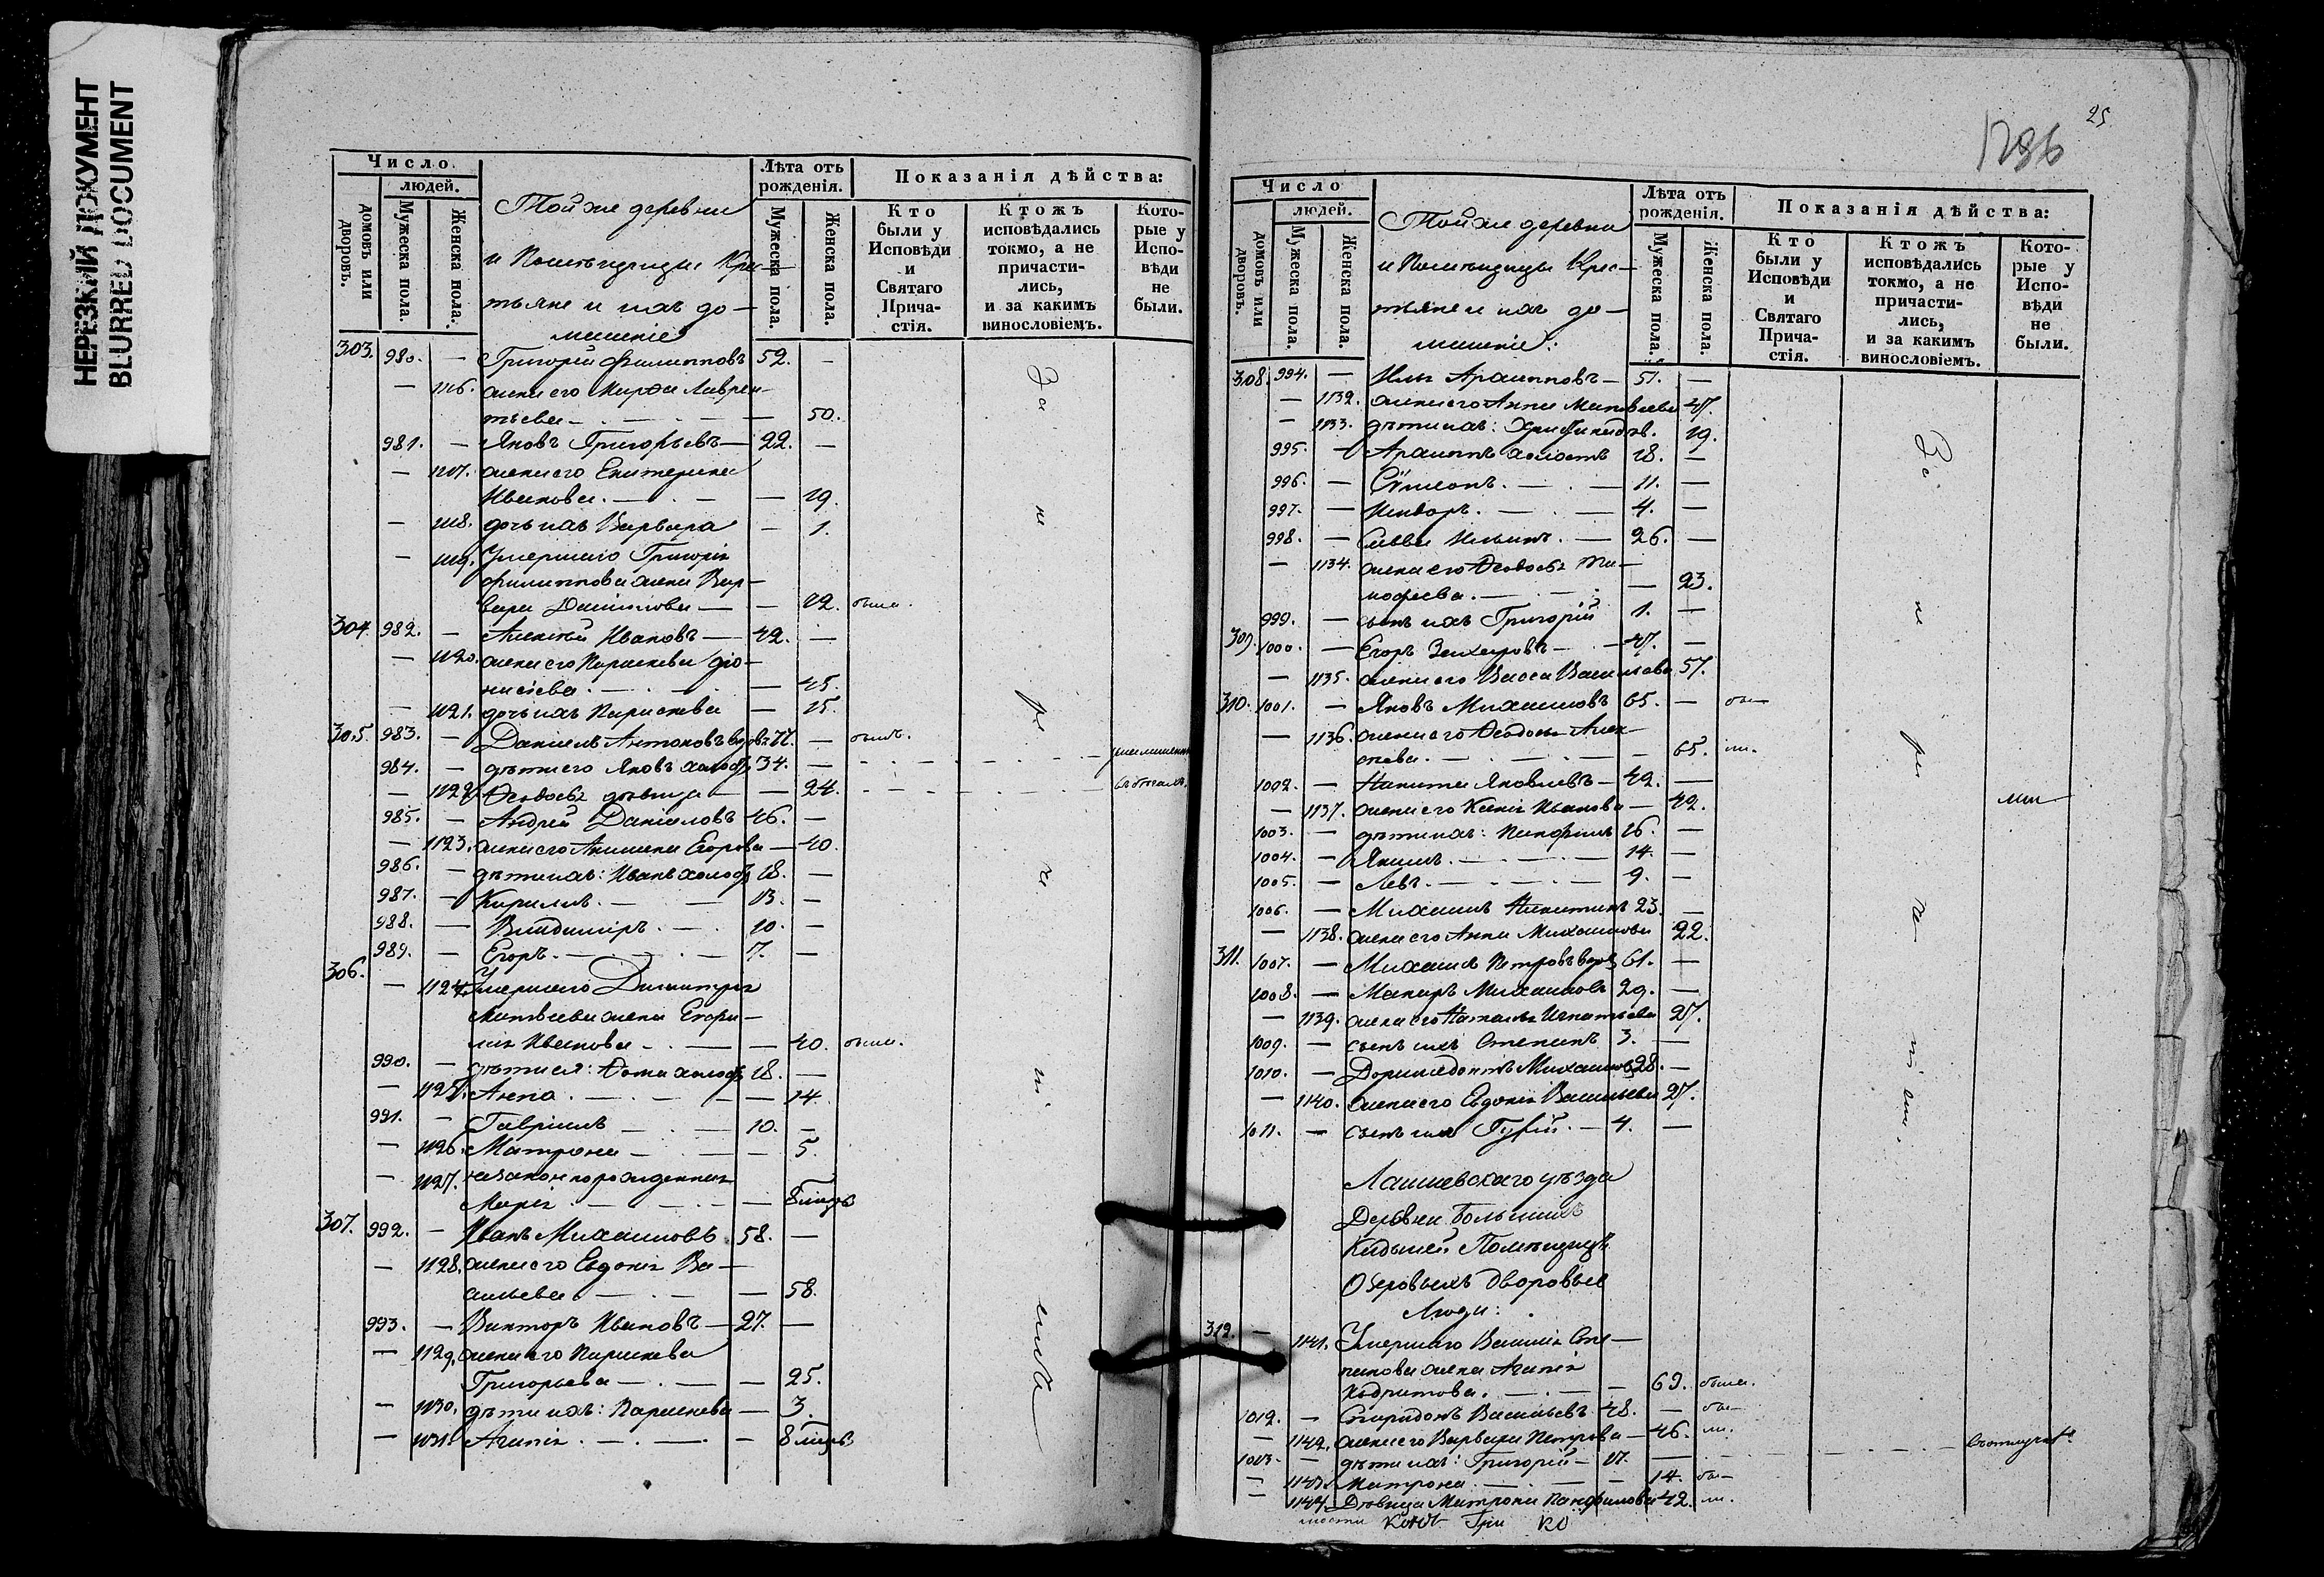 НЕРЕЗКИЙ ДОКУМЕНТ
BLURRED DOCUMENT
Число
людей.
домовъ или дворовъ.
Мужеска пола.
Женска пола.
Той же деревни
и Помѣщицы Крес-
тьяне и ихъ до-
машніе
Лѣта отъ рожденія.
Мужеска пола.
Женска пола.
Показанія дѣйства:
Кто были у Исповѣди и Святаго Прича-стія.
Ктожъ исповѣдались токмо, а не причасти-лись, и за какимъ винословіемъ.
Кото-рые у Испо-вѣди не были.
303. 980. — Григорій Филипповъ 52. —
— 1116. жена его Марѳа Лаврен-
тьева — 50.
981. — Яковъ Григорьевъ — 22. —
— 1117. жена его Екатерина
Иванова. — 19.
— 1118. дочь ихъ Варвара — 1.
— 1119. Умершаго Григорія
Филиппова жена Вар-
вара Данилова — 72. была.
304. 982. — Алексѣй Ивановъ — 42. —
— 1120. жена его Параскева Діо-
нисіева. — 45.
— 1121. дочь ихъ Параскева — 15.
305. 983. — Даніилъ Антоновъ вдовъ 77. — былъ.
984. — дѣти его Яковъ холостъ 34. —
— 1122. Ѳеодосья дѣвица — 24.
985. — Андрей Даніиловъ 46. —
— 1123. жена его Акилина Егорова — 40.
986. — дѣти ихъ: Иванъ холостъ 18. —
987. — Кириллъ. — 13. —
988. — Владиміръ. — 10. —
989. — Егоръ. — 7. —
306. — 1124. Умершаго Димитрія
Матвѣева жена Евдо-
кія Иванова — 40. была.
990. — дѣти ея: Ѳома холостъ 18. —
— 1125. Анна. — 14.
991. — Гавріилъ — 10. —
— 1126. Матрона — 5.
— 1127. незаконнорожденная
Марія. — 8 мѣсяц.
307. 992. — Иванъ Михаиловъ 58. —
— 1128. жена его Евдокія Ва-
сильева — 58.
993. — Викторъ Ивановъ — 27. —
— 1129. жена его Параскева
Григорьева — 25.
— 1130. дѣти ихъ: Параскева — 3.
— 1131. Агапія. — 8 мѣсяц.
За не ра че ні емъ
1286
25
Число
людей.
домовъ или дворовъ.
Мужеска пола.
Женска пола.
Той же деревни
и Помѣщицы Крес-
тьяне и ихъ до-
машніе:
Лѣта отъ рожденія.
Мужеска пола.
Женска пола.
Показанія дѣйства:
Кто были у Исповѣди и Святаго Прича-стія.
Ктожъ исповѣдались токмо, а не причасти-лись, и за какимъ винословіемъ.
Кото-рые у Испо-вѣди не были.
308. 994. — Илья Архипповъ — 51. —
— 1132. жена его Анна Матвѣева 47.
— 1133. дѣти ихъ: 19.
995. — Архиппъ холостъ 18. —
996. — Сѵмеонъ. — 11. —
997. — 4. —
998. — Савва Ильинъ. — 26. —
— 1134. жена его Ѳеодосья Ти-
моѳеева. — 23.
999. — сынъ ихъ Григорій 1. —
309. 1000. — Егоръ Захаровъ — 47. —
— 1135. жена его Васса Васильева 57.
310. 1001. — Яковъ Михаиловъ 65. — бы-
— 1136. жена его Ѳеодосья Алек-
сѣева. — 65. ли.
1002. — Никита Яковлевъ — 42. —
— 1137. жена его Ксенія Иванова — 42.
1003. — дѣти ихъ: Панфилъ 16. —
1004. — Якимъ. — 14. —
1005. — Левъ. — 9. —
1006. — Михаилъ Никитинъ 23. —
— 1138. жена его Анна Михаилова 22.
311. 1007. — Михаилъ Петровъ вдовъ 61. —
1008. — Макаръ Михаиловъ 29. —
— 1139. жена его Наталья Игнатьева 27.
1009. — сынъ ихъ Степанъ 3. —
1010. — Доримедонтъ Михаиловъ 28. —
— 1140. жена его Евдокія Васильева 27.
1011. — сынъ ихъ Гурій — 4. —
Лаишевскаго уѣзда
Деревни Большихъ
Кабаней Помѣщицъ
Озеровыхъ дворовые
Люди:
312. — 1141. Умершаго Василія Сте-
панова жена Агапія
— 69. была.
1012. — Спиридонъ Васильевъ 48. — бы-
— 1142. жена его Варвара Петрова — 46. ли.
1013. — дѣти ихъ: Григорій — 17. — въ отлучкѣ
— 1143. Матрона. — 14. бы-
— 1144. Дѣвица Матрона Панфилова 42. ли.
За не ра че ні емъ.